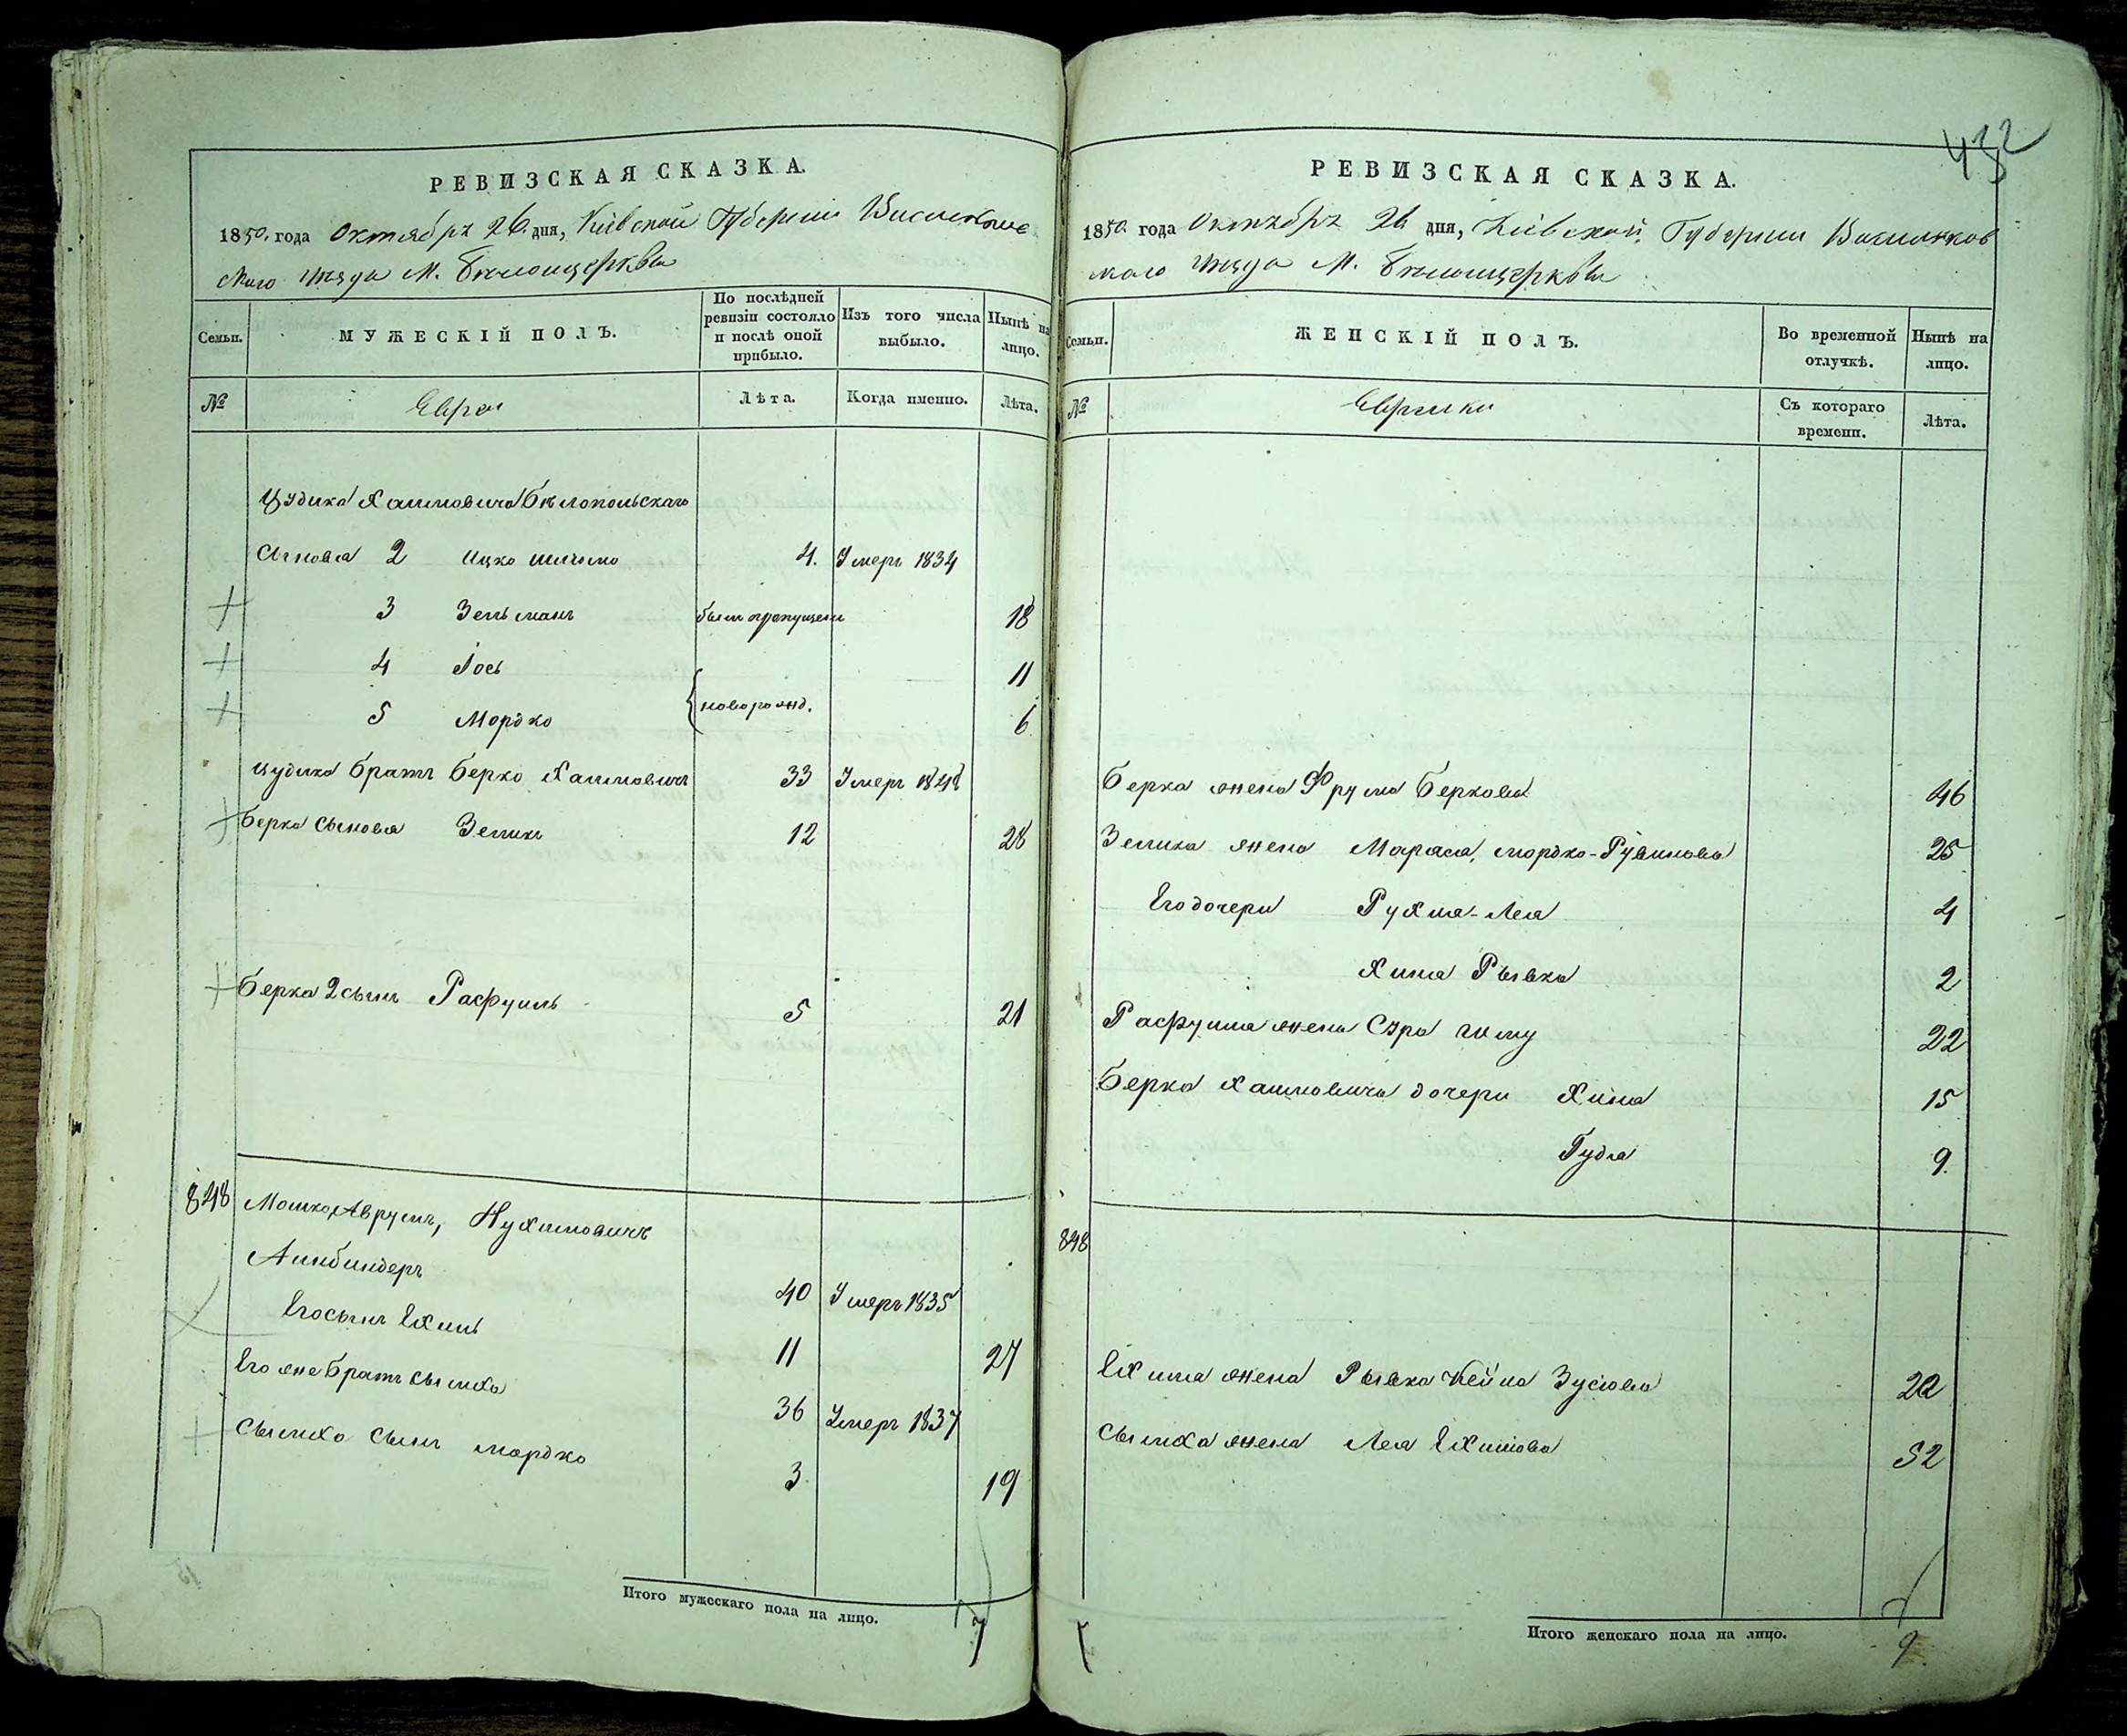 432
РЕВИЗСКАЯ СКАЗКА.
1850. года Октября 26. дня, Кіевской Губерніи Васильков
скаго уѣзда М. Бѣлоцеркви
Семьи.
МУЖЕСКІЙ ПОЛЪ.
По послѣдней ревизіи состояло и послѣ оной прибыло.
Изъ того числа выбыло.
Нынѣ на лицо.
№ Евреи Лѣта. Когда именно. Лѣта.
Цудика Хаимовича Бѣлопольскаго
Сыновья 2 Ицко Шлиомо 4. Умеръ 1834
3 Зельманъ былъ пропущенъ 18
4 Іось 11
новорожд.
5 Мордко 6
Цудика братъ Берко Хаимовичъ 33 Умеръ 1848
Берка сыновья Зеликъ 12 28
Берка 2 сынъ Расфуиль 5 21
848 Мошко, Аврумъ, Нухимовичъ
Аинбиндеръ 40 Умеръ 1835
Его сынъ Ехиль 11 27
Его же братъ Сымха 36 Умеръ 1837
Сымхо сынъ Мордко 3 19
Итого мужескаго пола на лицо. 7
РЕВИЗСКАЯ СКАЗКА.
1850. года Октября 26 дня, Кіевской Губерніи Васильков
скаго уѣзда М. Бѣлоцеркви
Семьи.
ЖЕНСКІЙ ПОЛЪ.
Во временной отлучкѣ.
Нынѣ на лицо.
№ Еврейки Съ котораго времени. Лѣта.
Берка жена Фрума Беркова 46
Зелика жена Маряса, Мордко-Рувинова 25
Его дочери Рухля-Лея 4
Хина Рывка 2
Расфуила жена Сура 22
Берка Хаимовича дочери Хина 15
Гудля 9.
848
Ехиля жена Рывка Нейха Зусіова 22
Сымха жена Лея Ехилова 52
Итого женскаго пола на лицо. 9